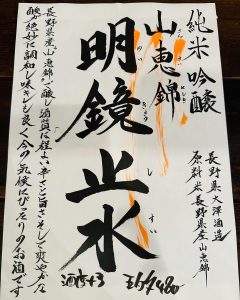 純米吟醸
山恵錦
長野県大澤酒造
原料米長野県産山恵錦
明鏡止水
し すい
酒度+3
長野県産"山恵錦"で醸し酒質は程よい辛さと旨さそして爽やかな
酸が絶妙に調和し味ぎれも良く今の気候にぴったりのお酒です